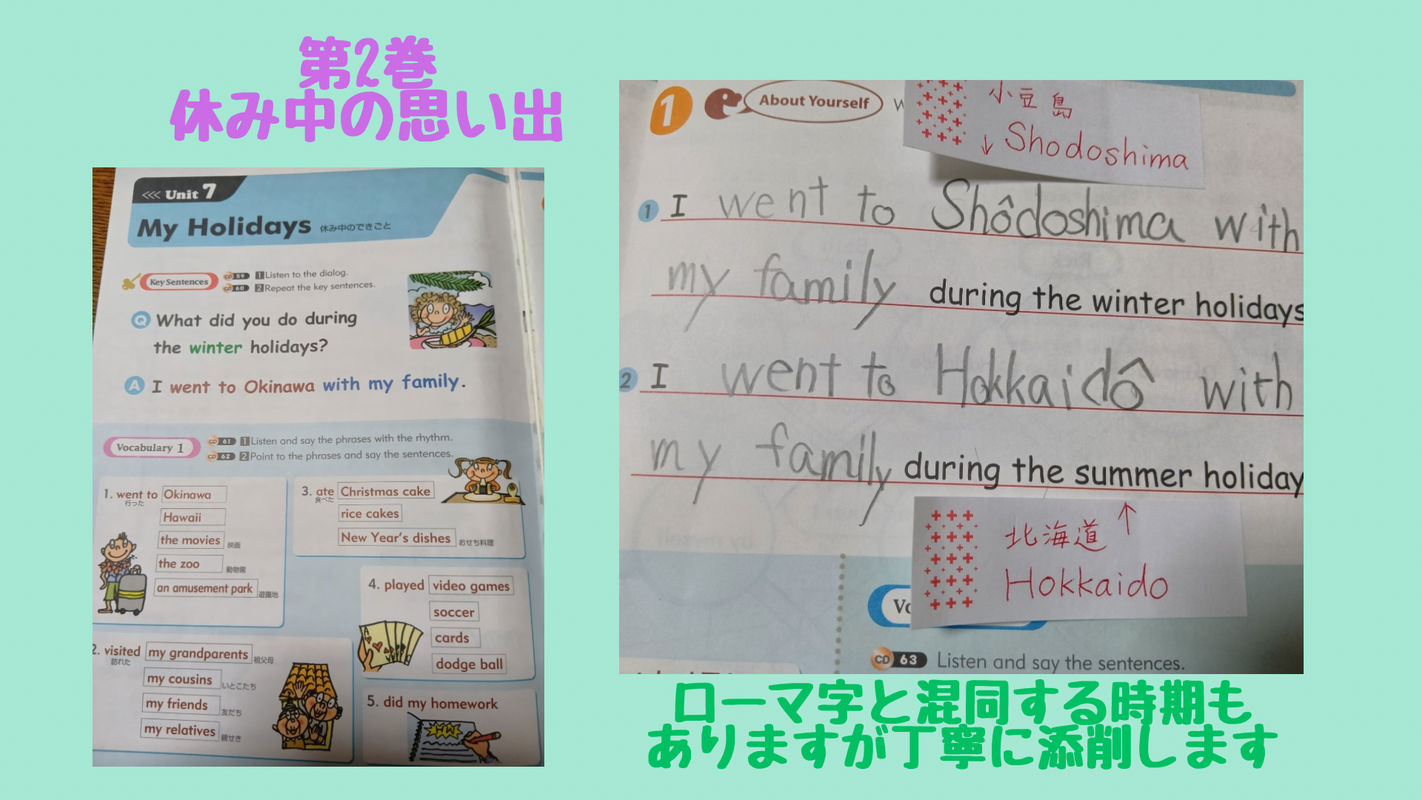 第2巻
休み中の思い出
<<< Unit 7
My Holidays 休み中のできごと
Key Sentences
CD 59 1 Listen to the dialog.
CD 60 2 Repeat the key sentences.
Q What did you do during
the winter holidays?
A I went to Okinawa with my family.
Vocabulary 1
CD 61 1 Listen and say the phrases with the rhythm.
CD 62 2 Point to the phrases and say the sentences.
1. went to Okinawa
行った
Hawaii
the movies 映画
the zoo 動物園
an amusement park 遊園地
2. visited my grandparents 祖父母
訪れた
my cousins いとこたち
my friends 友だち
my relatives 親せき
3. ate Christmas cake
食べた
rice cakes
New Year's dishes おせち料理
4. played video games
soccer
cards
dodge ball
5. did my homework
1 About Yourself W
小豆島
↓ Shodoshima
1 I went to Shôdoshima with
my family during the winter holidays
2 I went to Hokkaidô with
my family during the summer holiday
北海道 ↑
Hokkaido
Vo
CD 63 Listen and say the sentences.
ローマ字と混同する時期も
ありますが丁寧に添削します